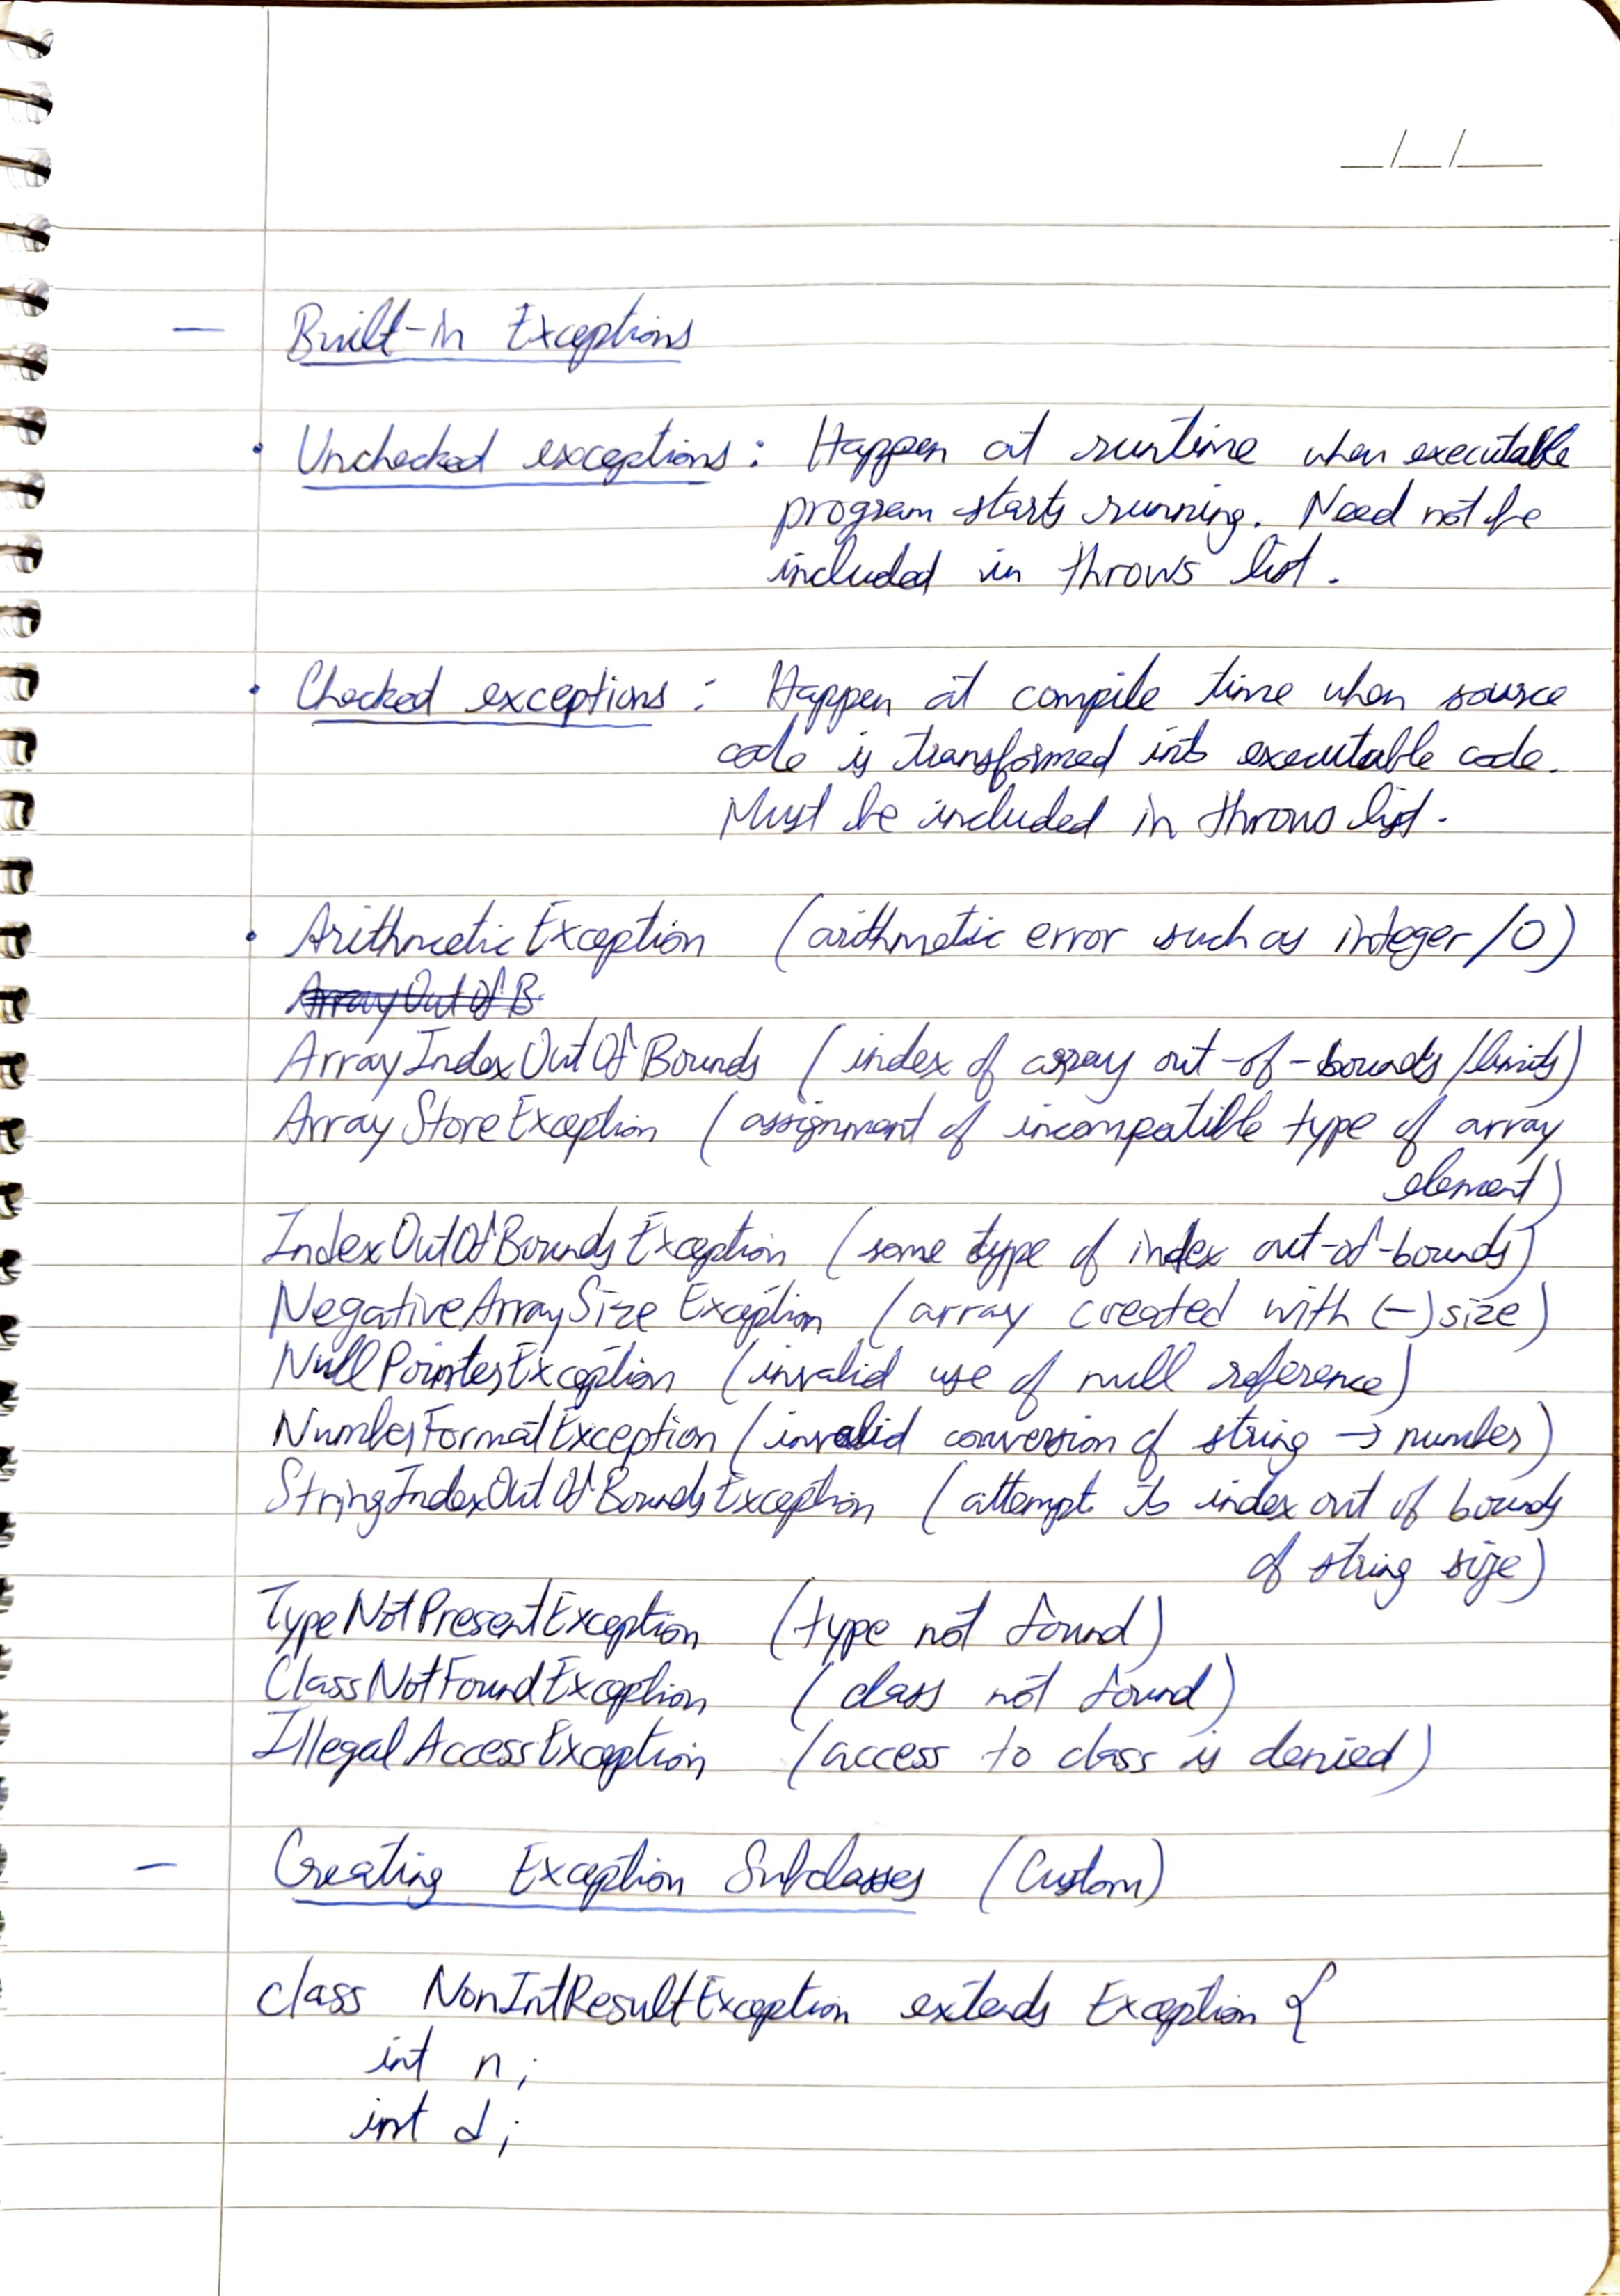 — Built-in Exceptions
• Unchecked exceptions : Happen at runtime when executable
program starts running. Need not be
included in throws list.
• Checked exceptions : Happen at compile time when source
code is transformed into executable code.
Must be included in throws list.
• ArithmeticException (arithmetic error such as integer /0)
ArrayOutOfB
ArrayIndexOutOfBounds (index of array out-of-bounds/limits)
ArrayStoreException (assignment of incompatible type of array
element)
IndexOutOfBoundsException (some type of index out-of-bounds)
NegativeArraySizeException (array created with (-) size)
NullPointerException (invalid use of null reference)
NumberFormatException (invalid conversion of string → number)
StringIndexOutOfBoundsException (attempt to index out of bounds
of string size)
TypeNotPresentException (type not found)
ClassNotFoundException (class not found)
IllegalAccessException (access to class is denied)
— Creating Exception Subclasses (Custom)
class NonIntResultException extends Exception {
int n;
int d;